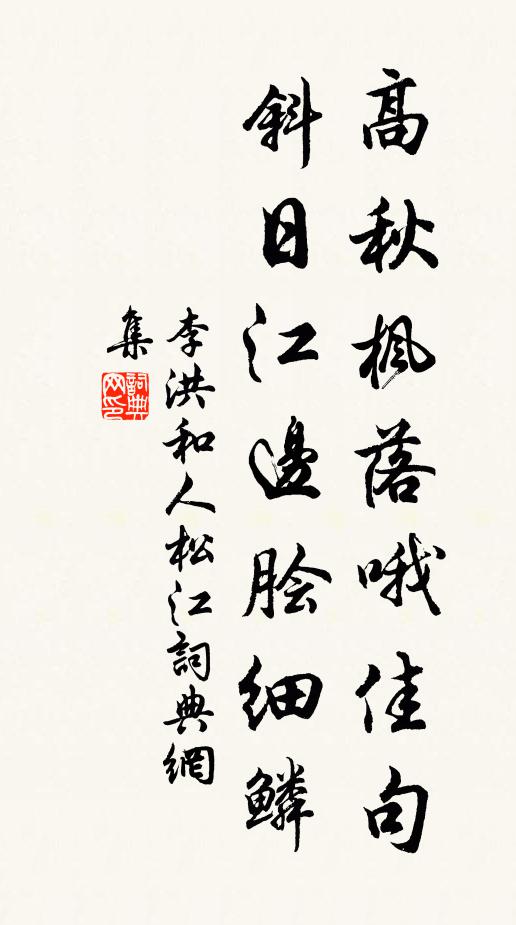 高秋楓落哦佳句
斜日江邊膾細鱗
李洪和人松江詞典網
集
詞典
网印